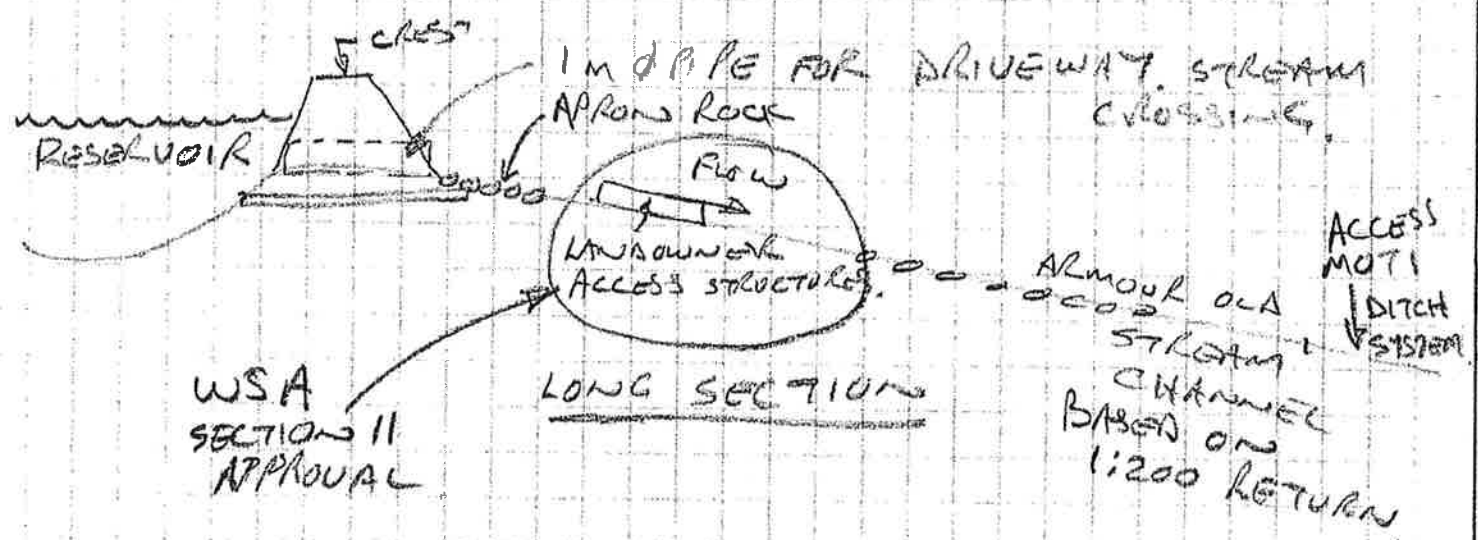 CREST
1 m Ø PIPE FOR DRIVEWAY STREAM
CROSSING.
APRON ROCK
RESERVOIR
FLOW
LANDOWNER
ACCESS STRUCTURES.
ACCESS
MOTI
DITCH
SYSTEM
ARMOUR OLD
STREAM
CHANNEL
BASED ON
1:200 RETURN
WSA
SECTION 11
APPROVAL
LONG SECTION